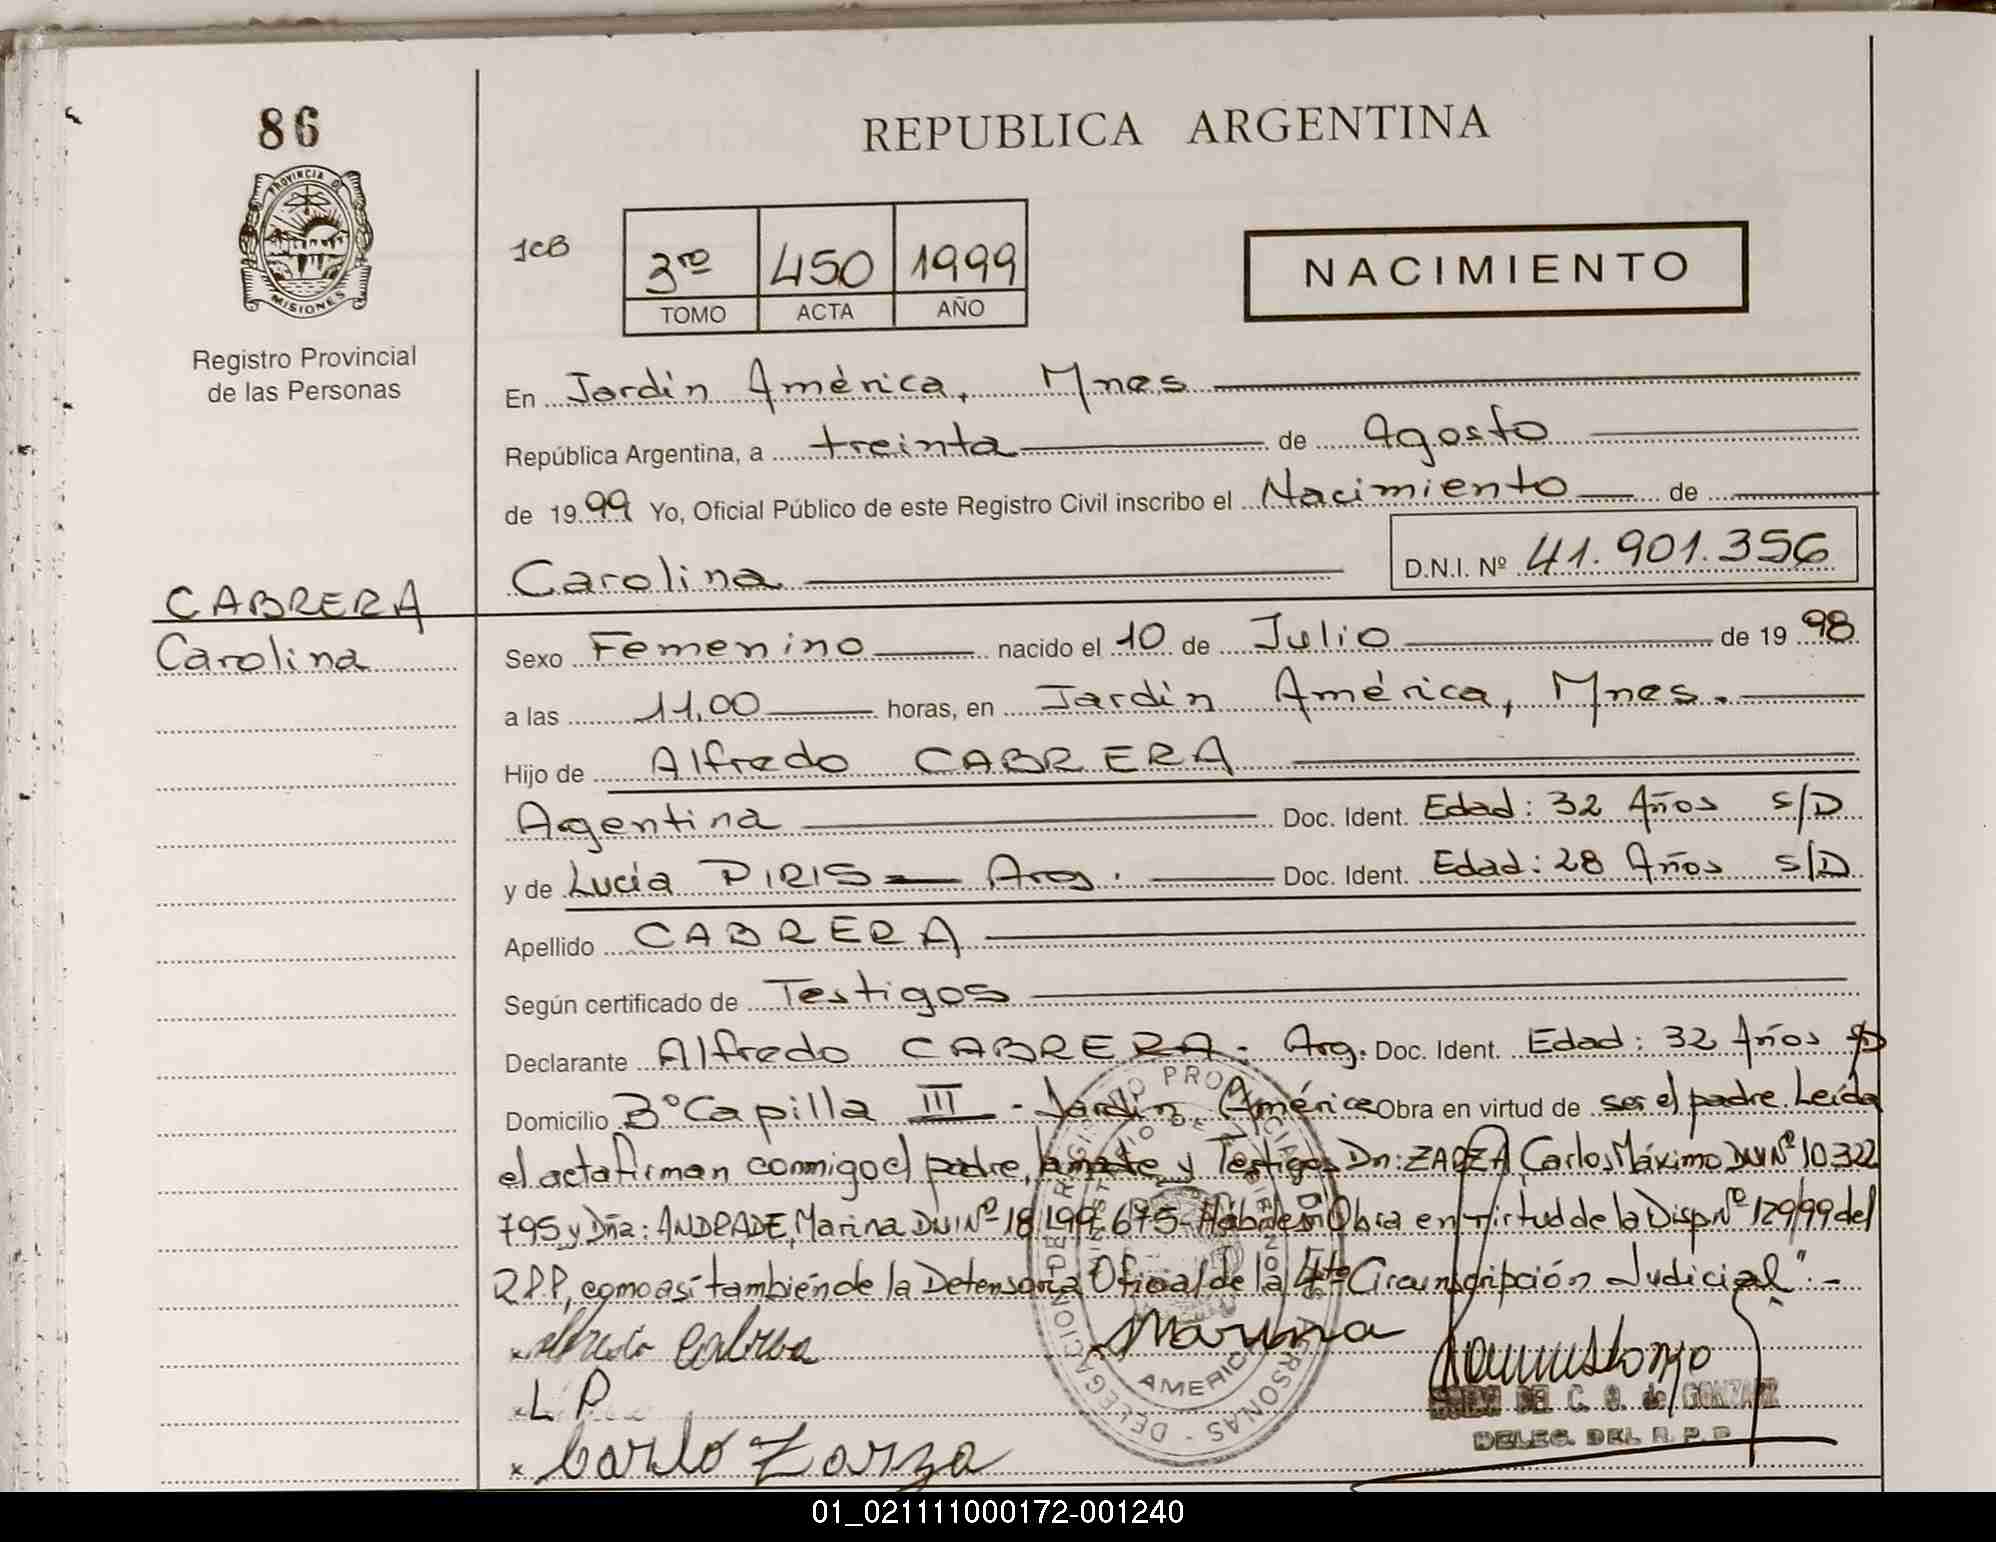 86
REPUBLICA ARGENTINA
PROVINCIA DE
MISIONES
Registro Provincial
de las Personas
1CB
3ro 450 1999
TOMO ACTA AÑO
NACIMIENTO
En Jardín América, Mnes
República Argentina, a treinta de Agosto
de 1999 Yo, Oficial Público de este Registro Civil inscribo el Nacimiento de
Carolina D.N.I. Nº 41.901.356
CABRERA
Carolina
Sexo Femenino nacido el 10 de Julio de 1998
a las 11,00 horas, en Jardín América, Mnes.
Hijo de Alfredo CABRERA
Argentina Doc. Ident. Edad: 32 Años S/D
y de Lucía PIRIS Arg. Doc. Ident. Edad: 28 Años S/D
Apellido CABRERA
Según certificado de Testigos
Declarante Alfredo CABRERA. Arg. Doc. Ident. Edad: 32 Años S/D
Domicilio Bº Capilla III - Jardín América Obra en virtud de ser el padre. Leída
el acta firman conmigo el padre, la madre y Testigos Dn: ZARZA, Carlos Máximo DNI Nº 10322
795 y Dña: ANDRADE, Marina DNI Nº 18.199.675- Obra en virtud de la Disp Nº 129/99 del
R.P.P, como así también de la Defensoría Oficial de la 4ta Circunscripción Judicial".-
x Alfredo Cabrera
Marina
x L P
DEL C. G. de GONZALEZ
DELEG. DEL R. P. P.
x Carlo Zarza
AMERICA
01_021111000172-001240